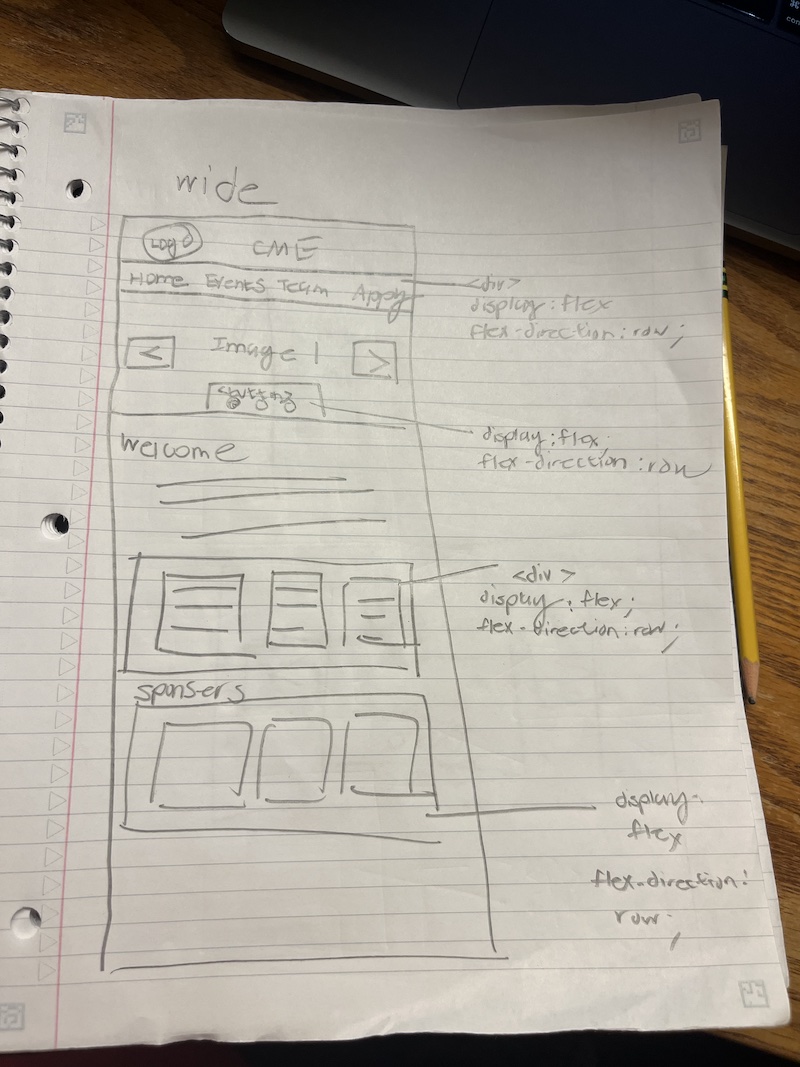 wide
Logo CME
Home Events Team Apply
<div>
display: flex
flex-direction: row;
< Image 1 >
display: flex;
flex-direction: row
Welcome
<div>
display: flex;
flex-direction: row;
sponsers
display:
flex
flex-direction:
row;